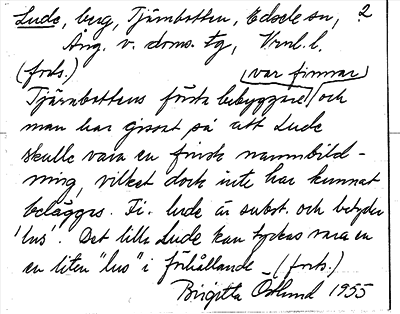 Lude, berg, Tjärnbotten, Edsele sn, 2
Ång. v. doms. tg, Vrnl. l.
(forts.) (var finnar)
Tjärnbottens första bebyggare och
man har gissat på att Lude
skulle vara en finsk namnbild-
ning, vilket dock inte har kunnat
beläggas. Fi. lude är subst. och betyder
'lus'. Det lilla Lude kan tyckas vara en
en liten "lus" i förhållande (forts.)
Birgitta Östlund 1955